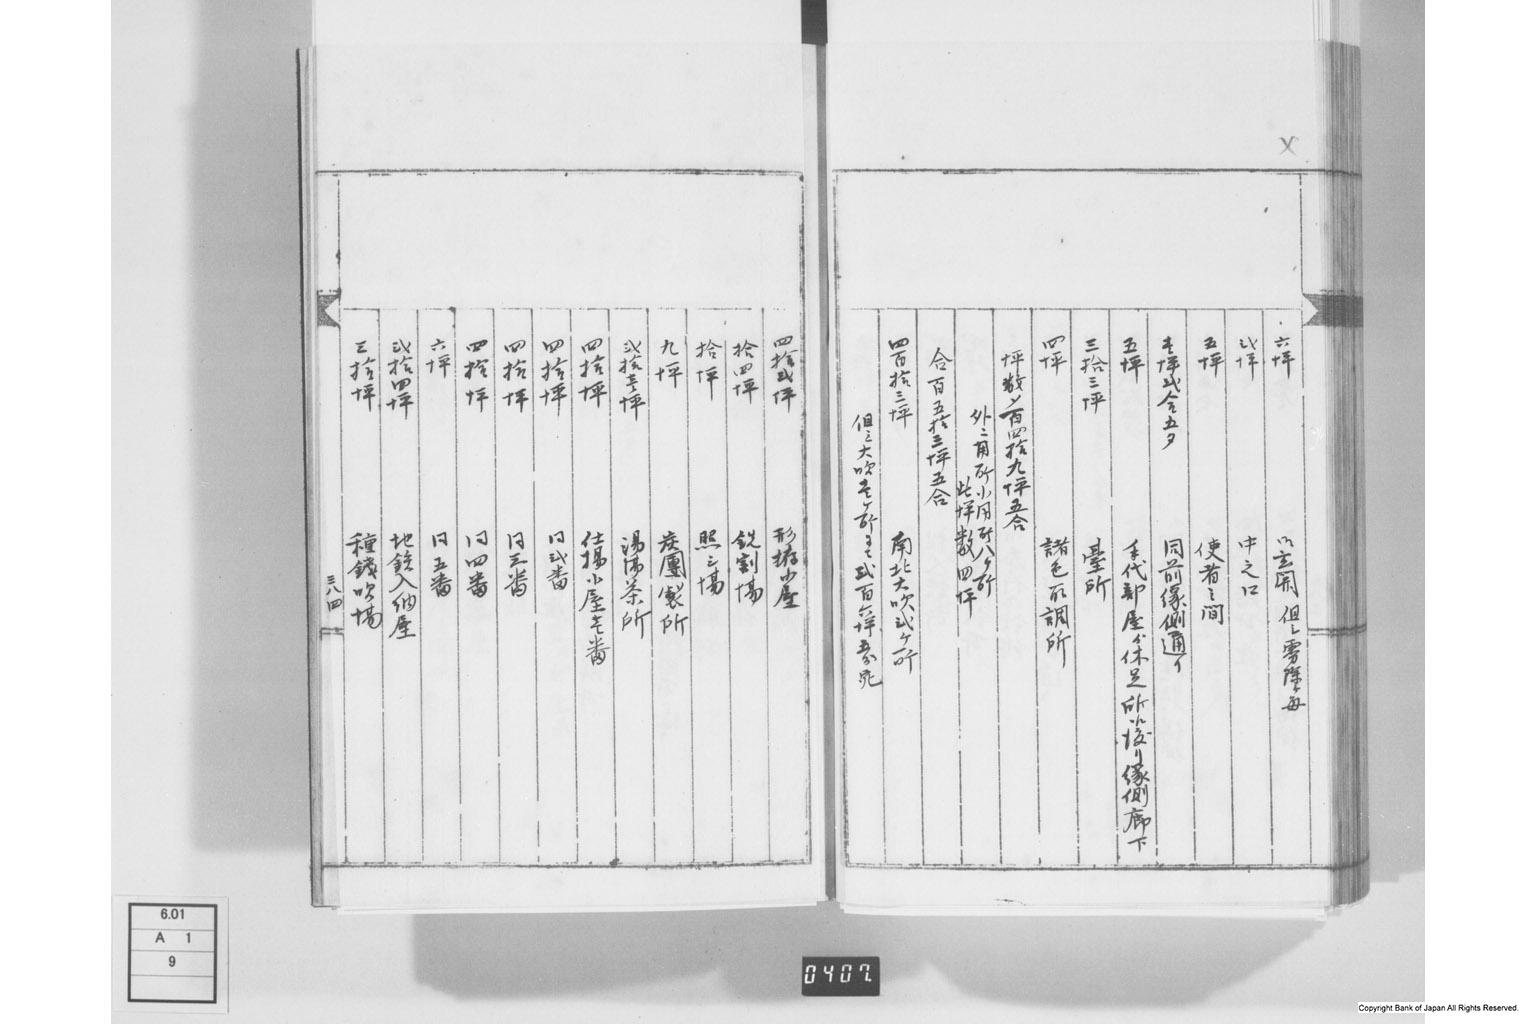 六坪 御玄関 但シ
弐坪 中之口
五坪 使者之間
壱坪弐合五夕 同前縁側通リ
五坪 手代部屋ゟ休足所江渡リ縁側廊下
三拾三坪 臺所
四坪 諸色取調所
坪数〆百四拾九坪五合
外ニ用所小用所八ヶ所
此坪数四坪
合百五拾三坪五合
四百拾三坪 南北大吹弐ヶ所
但シ大吹壱ヶ所ニ而弐百六坪五分宛
四拾弐坪 形拵小屋
拾四坪 銑割場
拾坪 照シ場
九坪 炭團製所
弐拾壱坪 湯沸茶所
四拾坪 仕揚小屋壱番
四拾坪 同弐番
四拾坪 同三番
四拾坪 同四番
六坪 同五番
弐拾四坪 地銑入納屋
三拾坪 種錢吹場
三八四
6.01
A 1
9
0407
Copyright Bank of Japan All Rights Reserved.